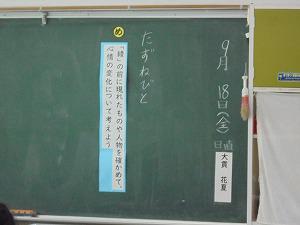 9月18日(金)
日直
大貫 花夏
たずねびと
め
「綾」の前に現れたものや人物を確かめて、
心情の変化について考えよう